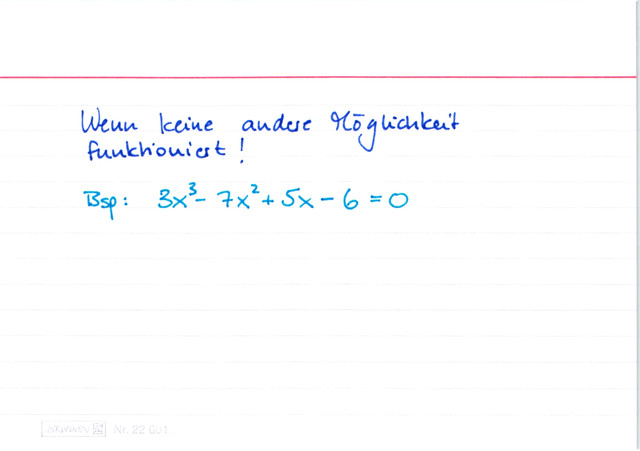 Wenn keine andere Möglichkeit
funktioniert!
Bsp: 3x³ - 7x² + 5x - 6 = 0
Nr. 22 601